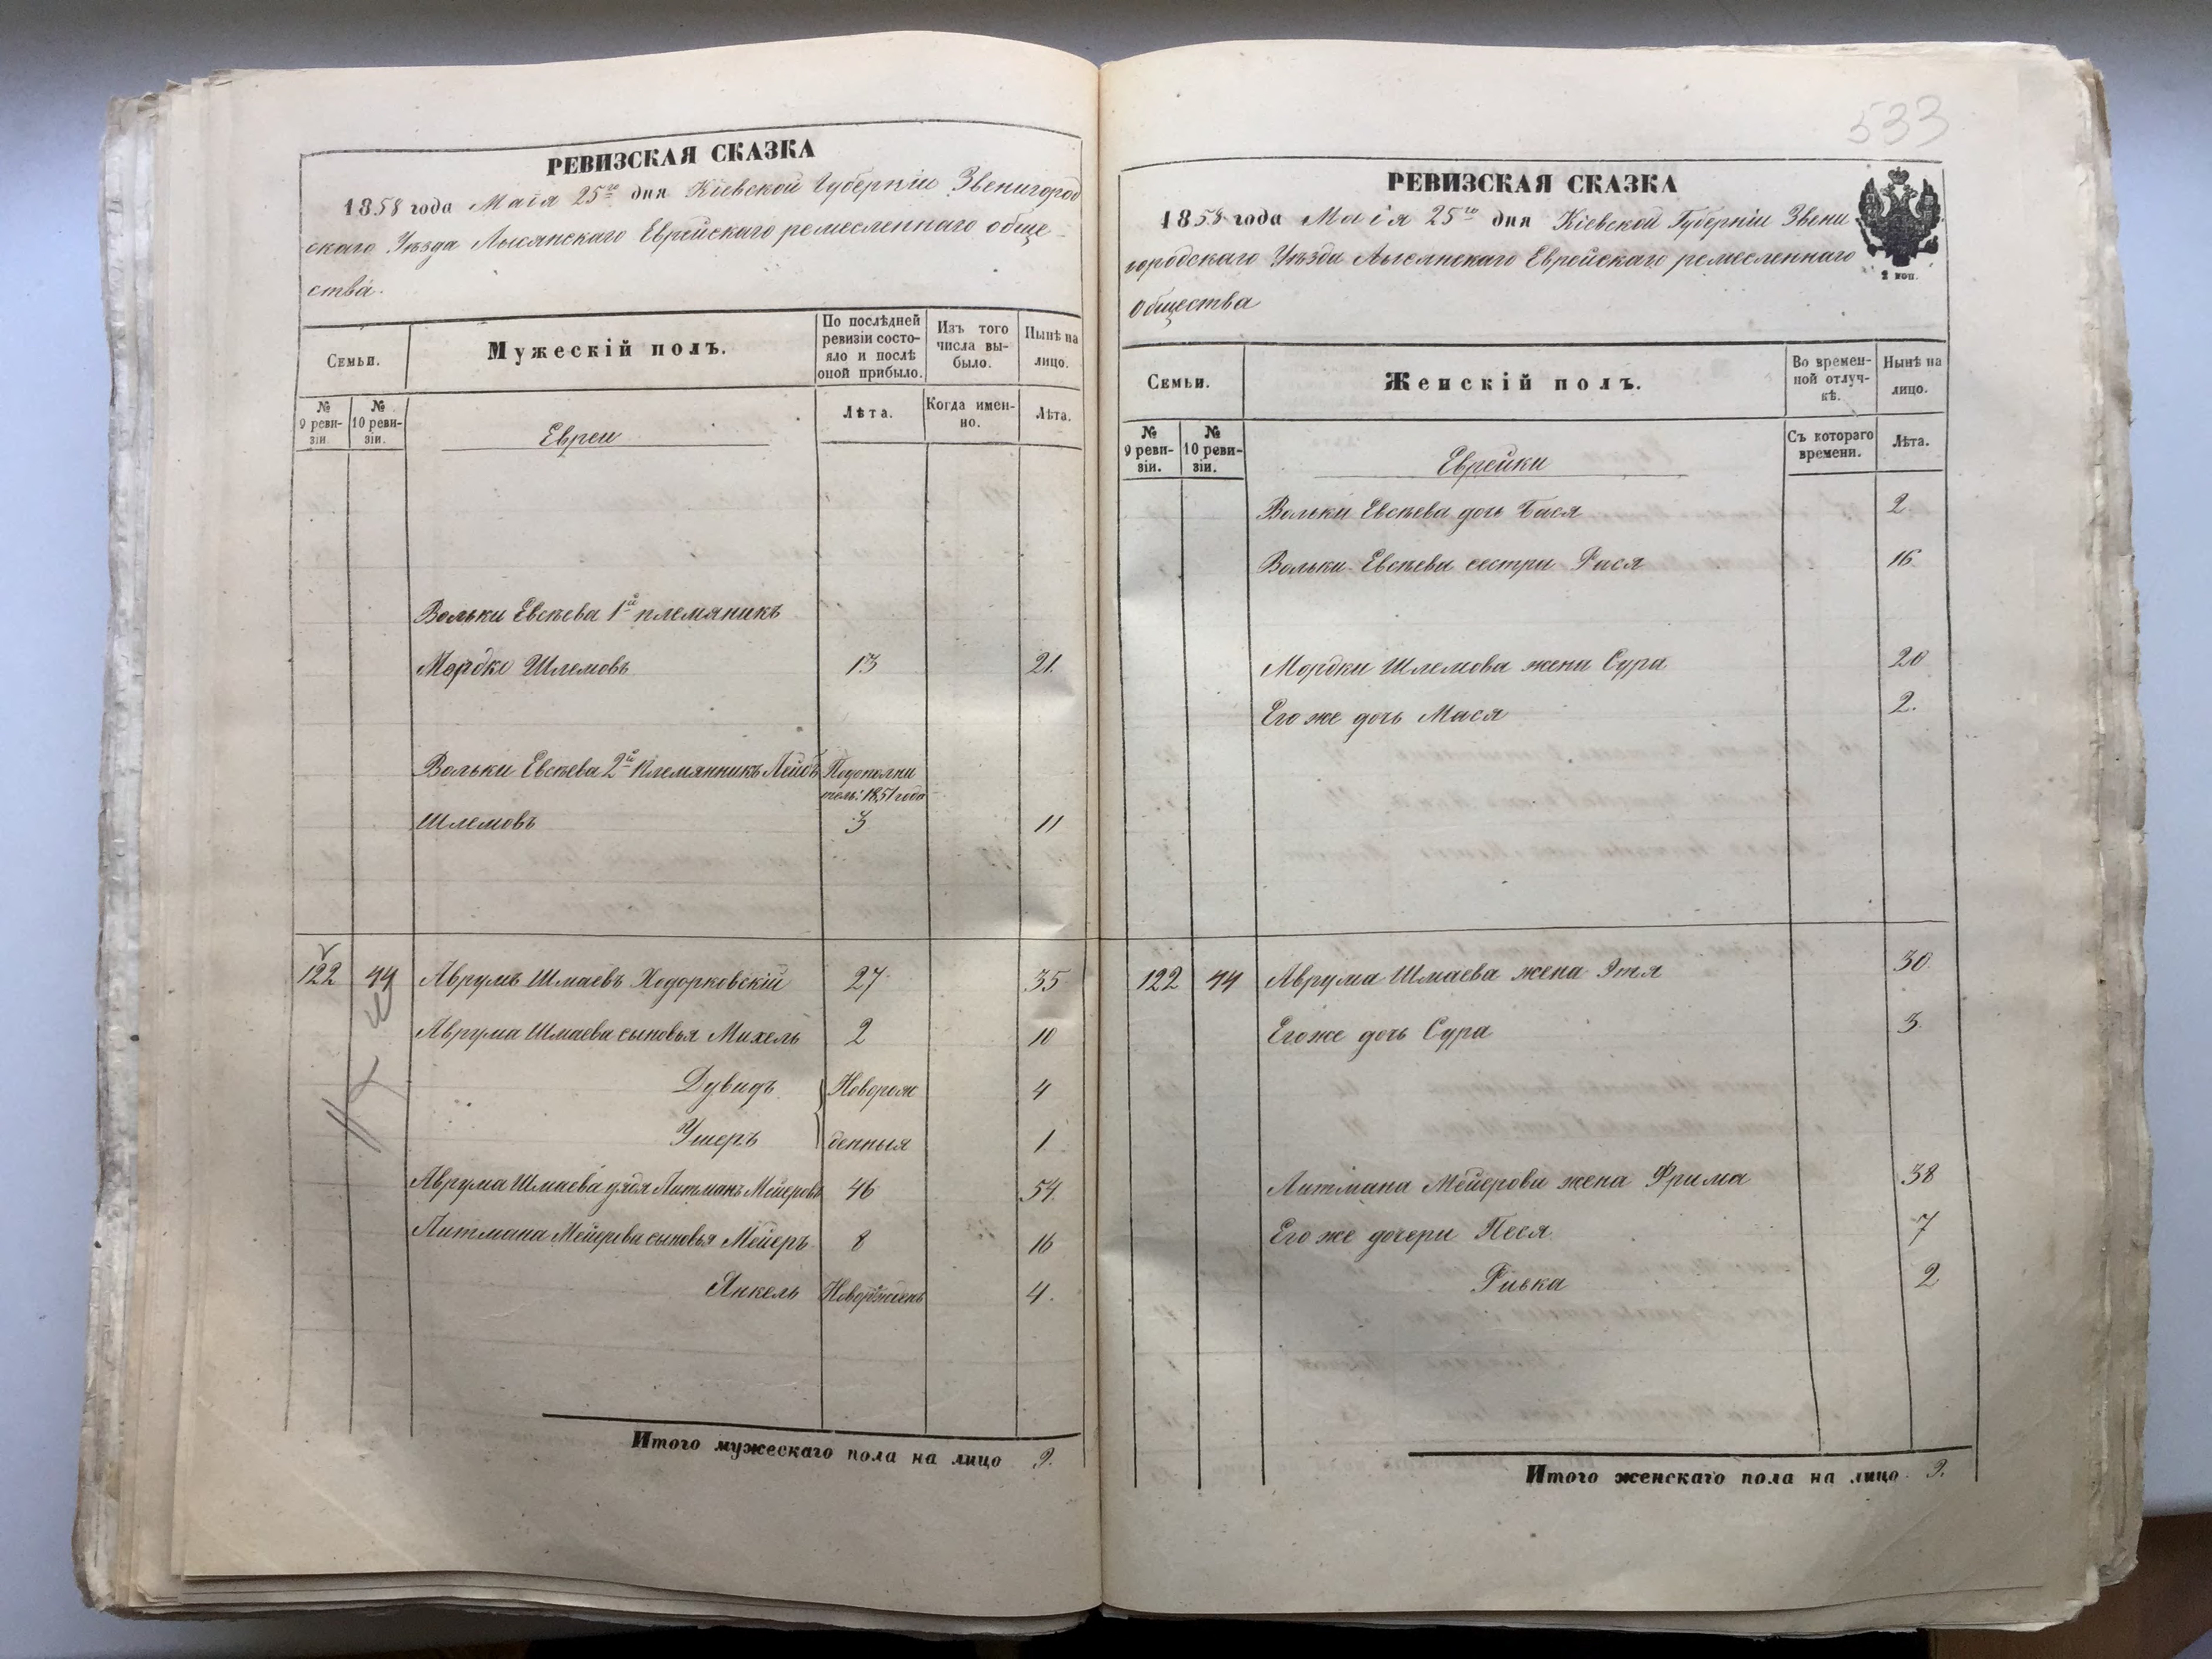 РЕВИЗСКАЯ СКАЗКА
1858 года Маія 25го дня Кіевской Губерніи Звенигород
скаго Уѣзда Лысянскаго Еврейскаго ремесленнаго обще-
ства.
Семьи.
Мужескій полъ.
По послѣдней ревизіи состояло и послѣ оной прибыло.
Изъ того числа выбыло.
Нынѣ на лицо.
№ 9 ревизіи.
№ 10 ревизіи.
Евреи
Лѣта.
Когда именно.
Лѣта.
Вольки Евсѣева 1й племяникъ
Мордко Шлемовъ 13 21.
Вольки Евсѣева 2й племянникъ Лейбъ Подополни
тель: 1851 года
Шлемовъ 3 11
122 44 Аврумъ Шмаевъ Ходорковскій 27 35
Аврума Шмаева сыновья Михель 2 10
Дувидъ Новорож 4
Ушеръ денныя 1
Аврума Шмаева дядя Литманъ Мейеровъ 46 54.
Литмана Мейерова сыновья Мейеръ 8 16
Янкель Новорожденъ 4.
Итого мужескаго пола на лицо 9.
533
РЕВИЗСКАЯ СКАЗКА
1858 года Маія 25го дня Кіевской Губерніи Звени
городскаго Уѣзда Лысянскаго Еврейскаго ремесленнаго
общества
2 коп.
Семьи.
Женскій полъ.
Во временной отлучкѣ.
Нынѣ на лицо.
№ 9 ревизіи.
№ 10 ревизіи.
Еврейки
Съ котораго времени.
Лѣта.
Вольки Евсѣева дочь Бася 2
Вольки Евсѣева сестра Рися 16
Мордки Шлемова жена Сура 20
Его же дочь Мася 2.
122 44 Аврума Шмаева жена Этя 30
Его же дочь Сура 3
Литмана Мейерова жена Фрима 38
Его же дочери Песя 7
Ривка 2
Итого женскаго пола на лицо 9.